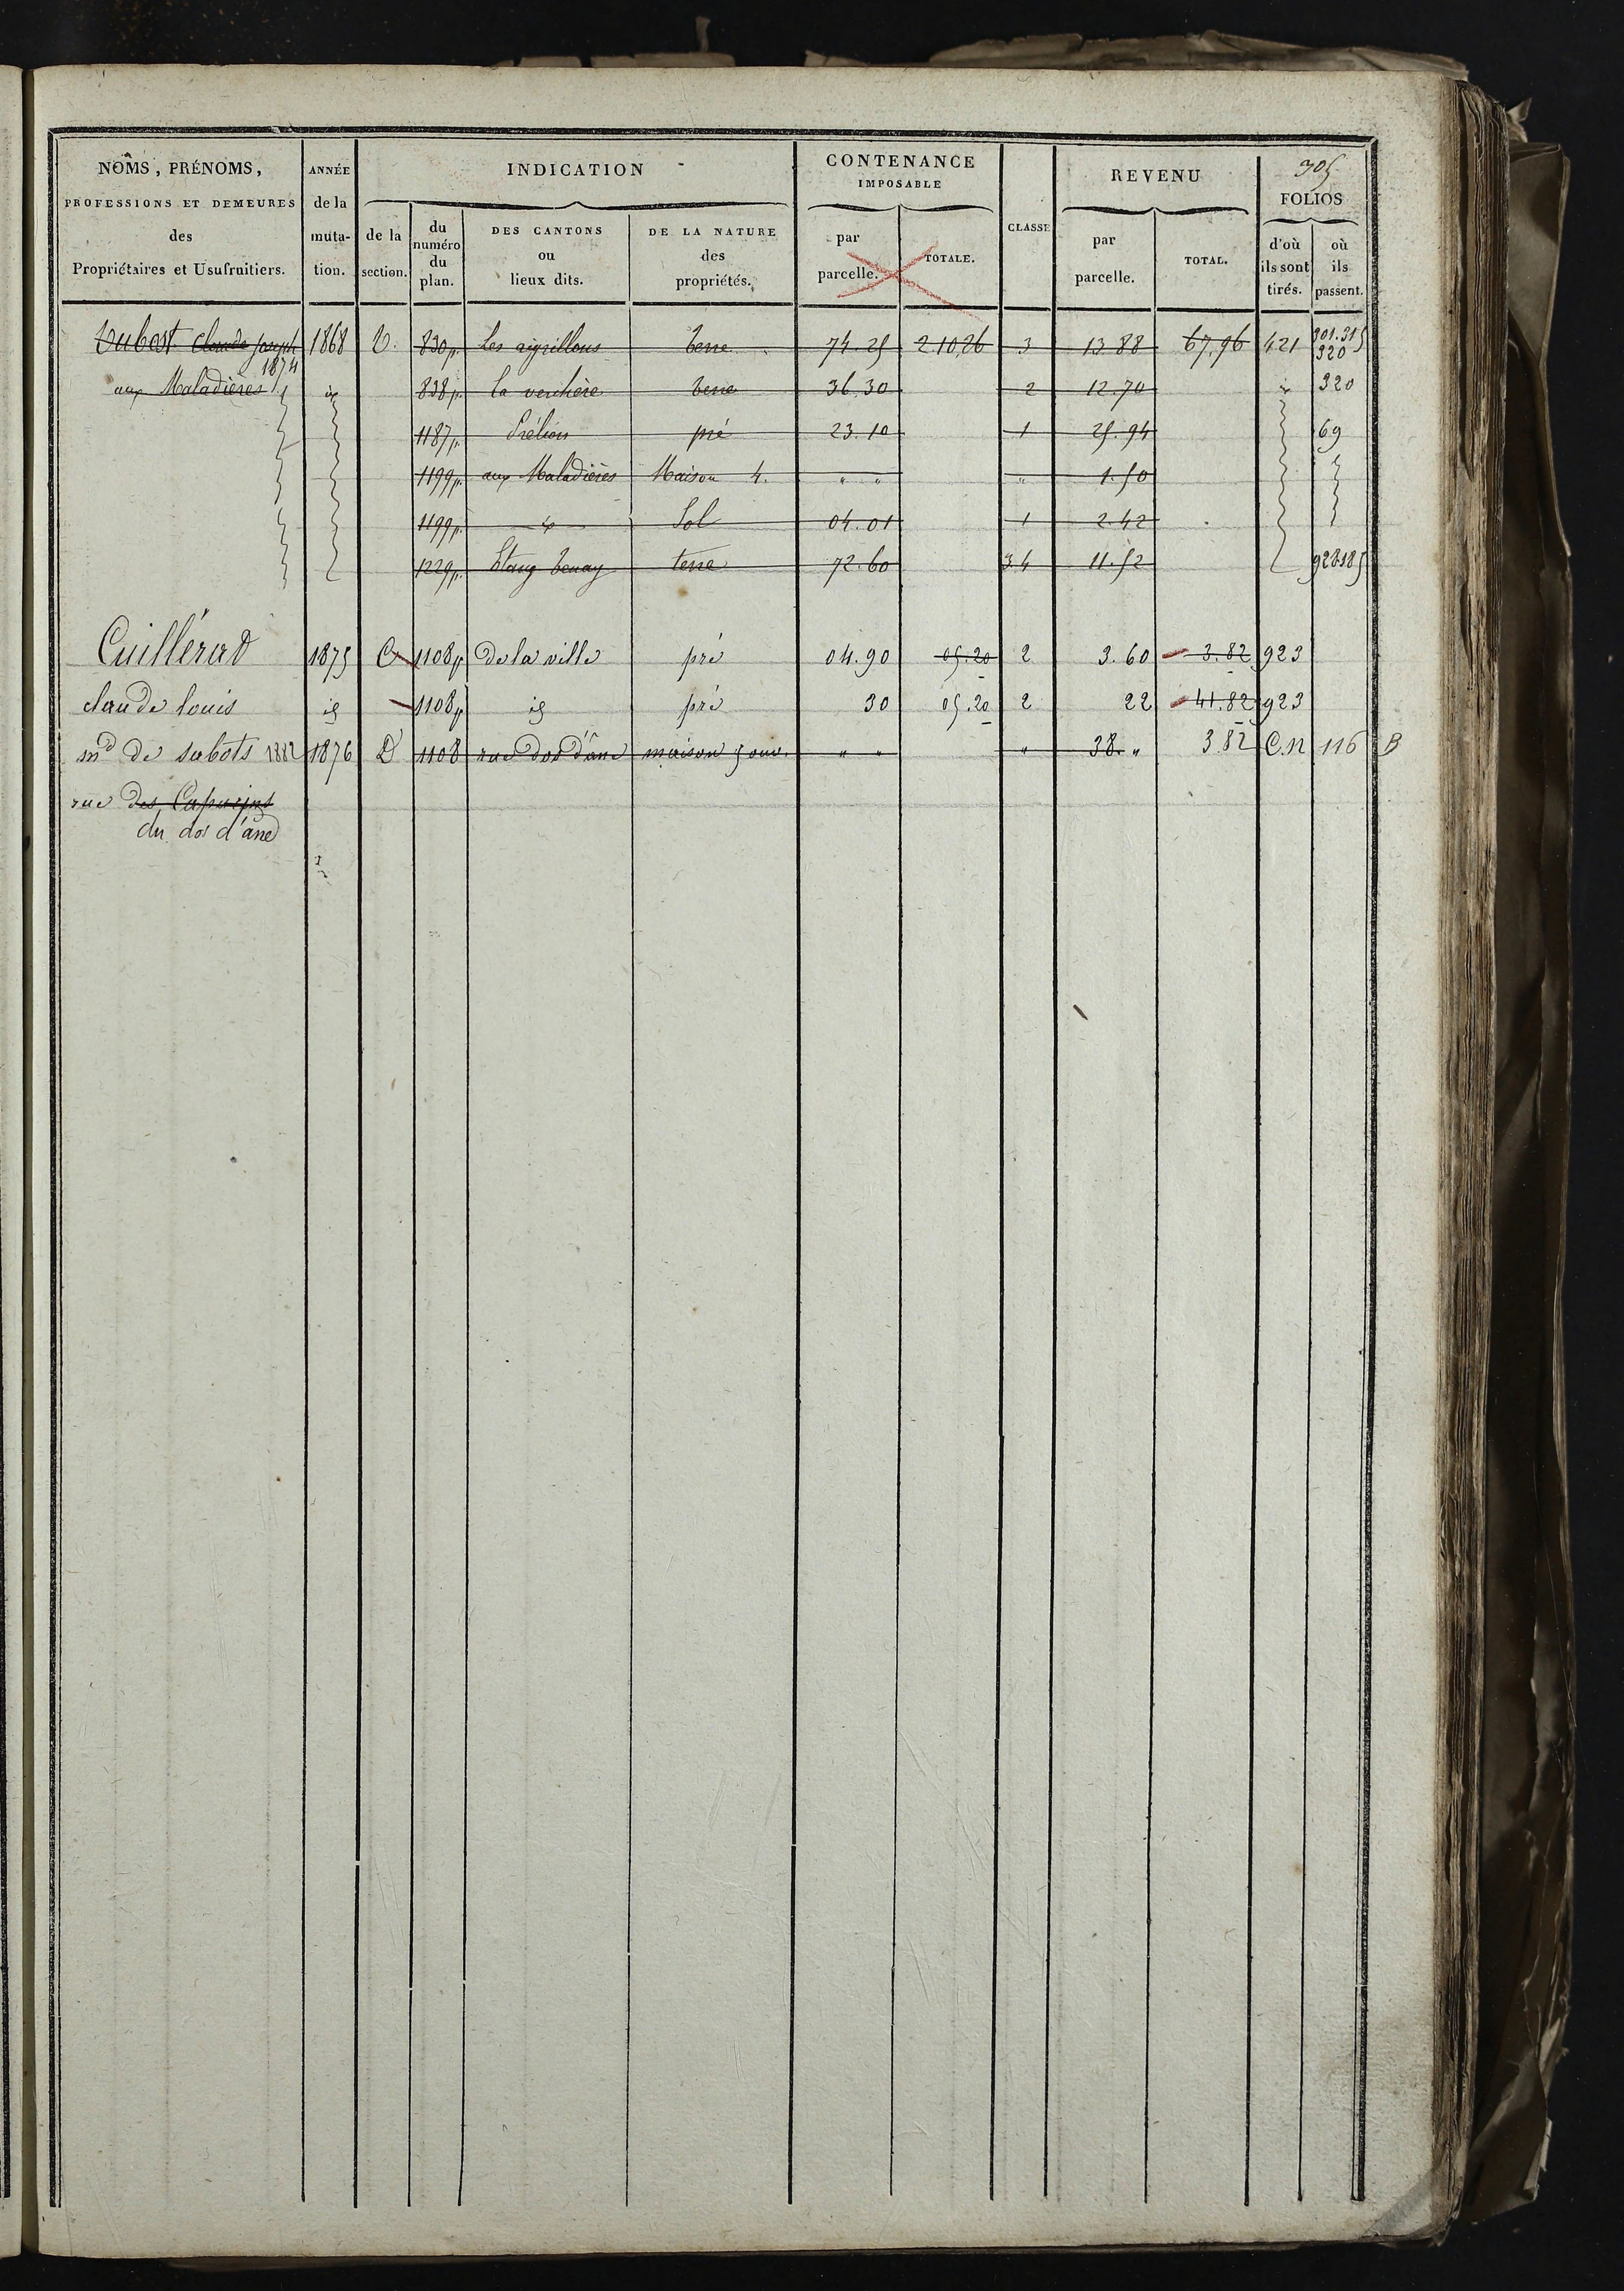 305
NOMS, PRÉNOMS, PROFESSIONS ET DEMEURES des Propriétaires et Usufruitiers.
ANNÉE de la muta- tion.
INDICATION
de la section.
du numéro du plan.
DES CANTONS ou lieux dits.
DE LA NATURE des propriétés.
CONTENANCE IMPOSABLE
par parcelle.
TOTALE.
CLASSE
REVENU
par parcelle.
TOTAL.
FOLIOS
d'où ils sont tirés.
où ils passent.
Dubost Claude Joseph 1868 830p. Les aigrillons terre 74.25 2.10.26 3 13.88 67.96 421 301.315 320
1874
aux Maladières id 838p. La verchère terre 36.30 2 12.70 id 320
1187p. pré 23.10 1 25.94 69
1199p. aux Maladières Maison 4. " " " 1.50
1199p. id Sol 04.01 1 2.42
1229p. Etang terre 72.60 3.4 11.52
Cuillérat 1875 C 1108p De la ville pré 04.90 05.20 2 3.60 3.82 923
claude louis id 1108p id pré 30 05.20 2 22 41.82 923
md de sabots 1882 1876 D 1108 rue dos d'âne maison 5 ouv. " " " 38. " 3.82 C.N 116 B
rue des Capucins
du dos d'âne